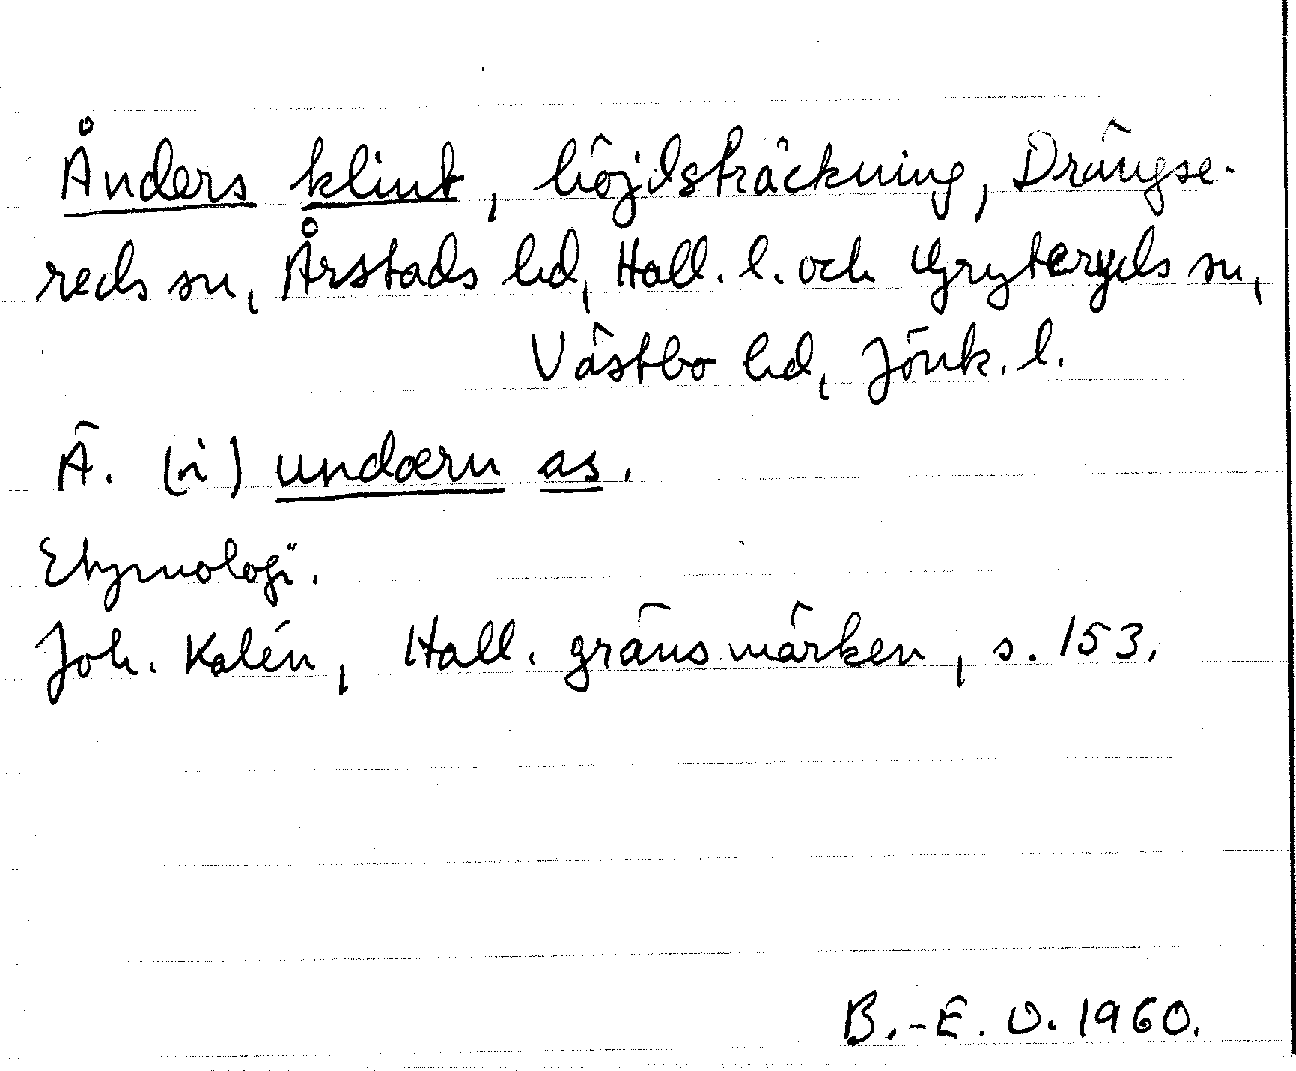 Ånders klint, höjdsträckning, Drängse-
reds sn, Årstads hd, Hall. l. och Gryteryds sn,
Västbo hd, Jönk. l.
Ä. (i) undærn as.
Etymologi.
Joh. Kalén, Hall. gränsmärken, s. 153.
B.-E. O. 1960.